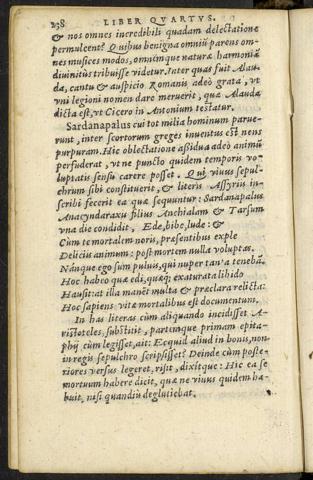 238 LIBER QVARTVS.
& nos omnes incredibili quadam delectatione
permulcent? Quibus benigna omniū parens om-
nes musices modos, omnémque naturæ harmoniā
diuinitùs tribuisse videtur. Inter quas fuit Alau-
da, cantu & auspicio Romanis adeò grata, vt
vni legioni nomen dare meruerit, quæ Alauda
dicta est, vt Cicero in Antonium testatur.
Sardanapalus cui tot milia hominum parue-
runt, inter scortorum greges inuentus est nens
purpuram. Hic oblectatione assidua adeò animū
perfuderat, vt ne puncto quidem temporis vo-
luptatis sensu carere posset. Qui viuus sepul-
chrum sibi constituerit, & literis Assyriis in-
scribi fecerit ea quæ sequuntur: Sardanapalus
Anacyndaraxu filius Anchialam & Tarsum
vna die condidit, Ede, bibe, lude: &
Cùm te mortalem noris, præsentibus exple
Deliciis animum: post mortem nulla voluptas.
Nánque ego sum puluis, qui nuper tanta tenebā.
Hoc habeo quæ edi, quæq; exaturata libido
Hausit: at illa manēt multa & præclara relicta:
Hoc sapiens vitæ mortalibus est documentum.
In has literas cùm aliquando incidisset A-
ristoteles, substitit, partémque primam epita-
phij cùm legisset, ait: Ecquid aliud in bouis, non
in regis sepulchro scripsisset? Deinde cùm poste-
riores versus legeret, risit, dixítque: Hic ea se
mortuum habere dicit, quæ ne viuus quidem ha-
buit, nisi quandiu deglutiebat.